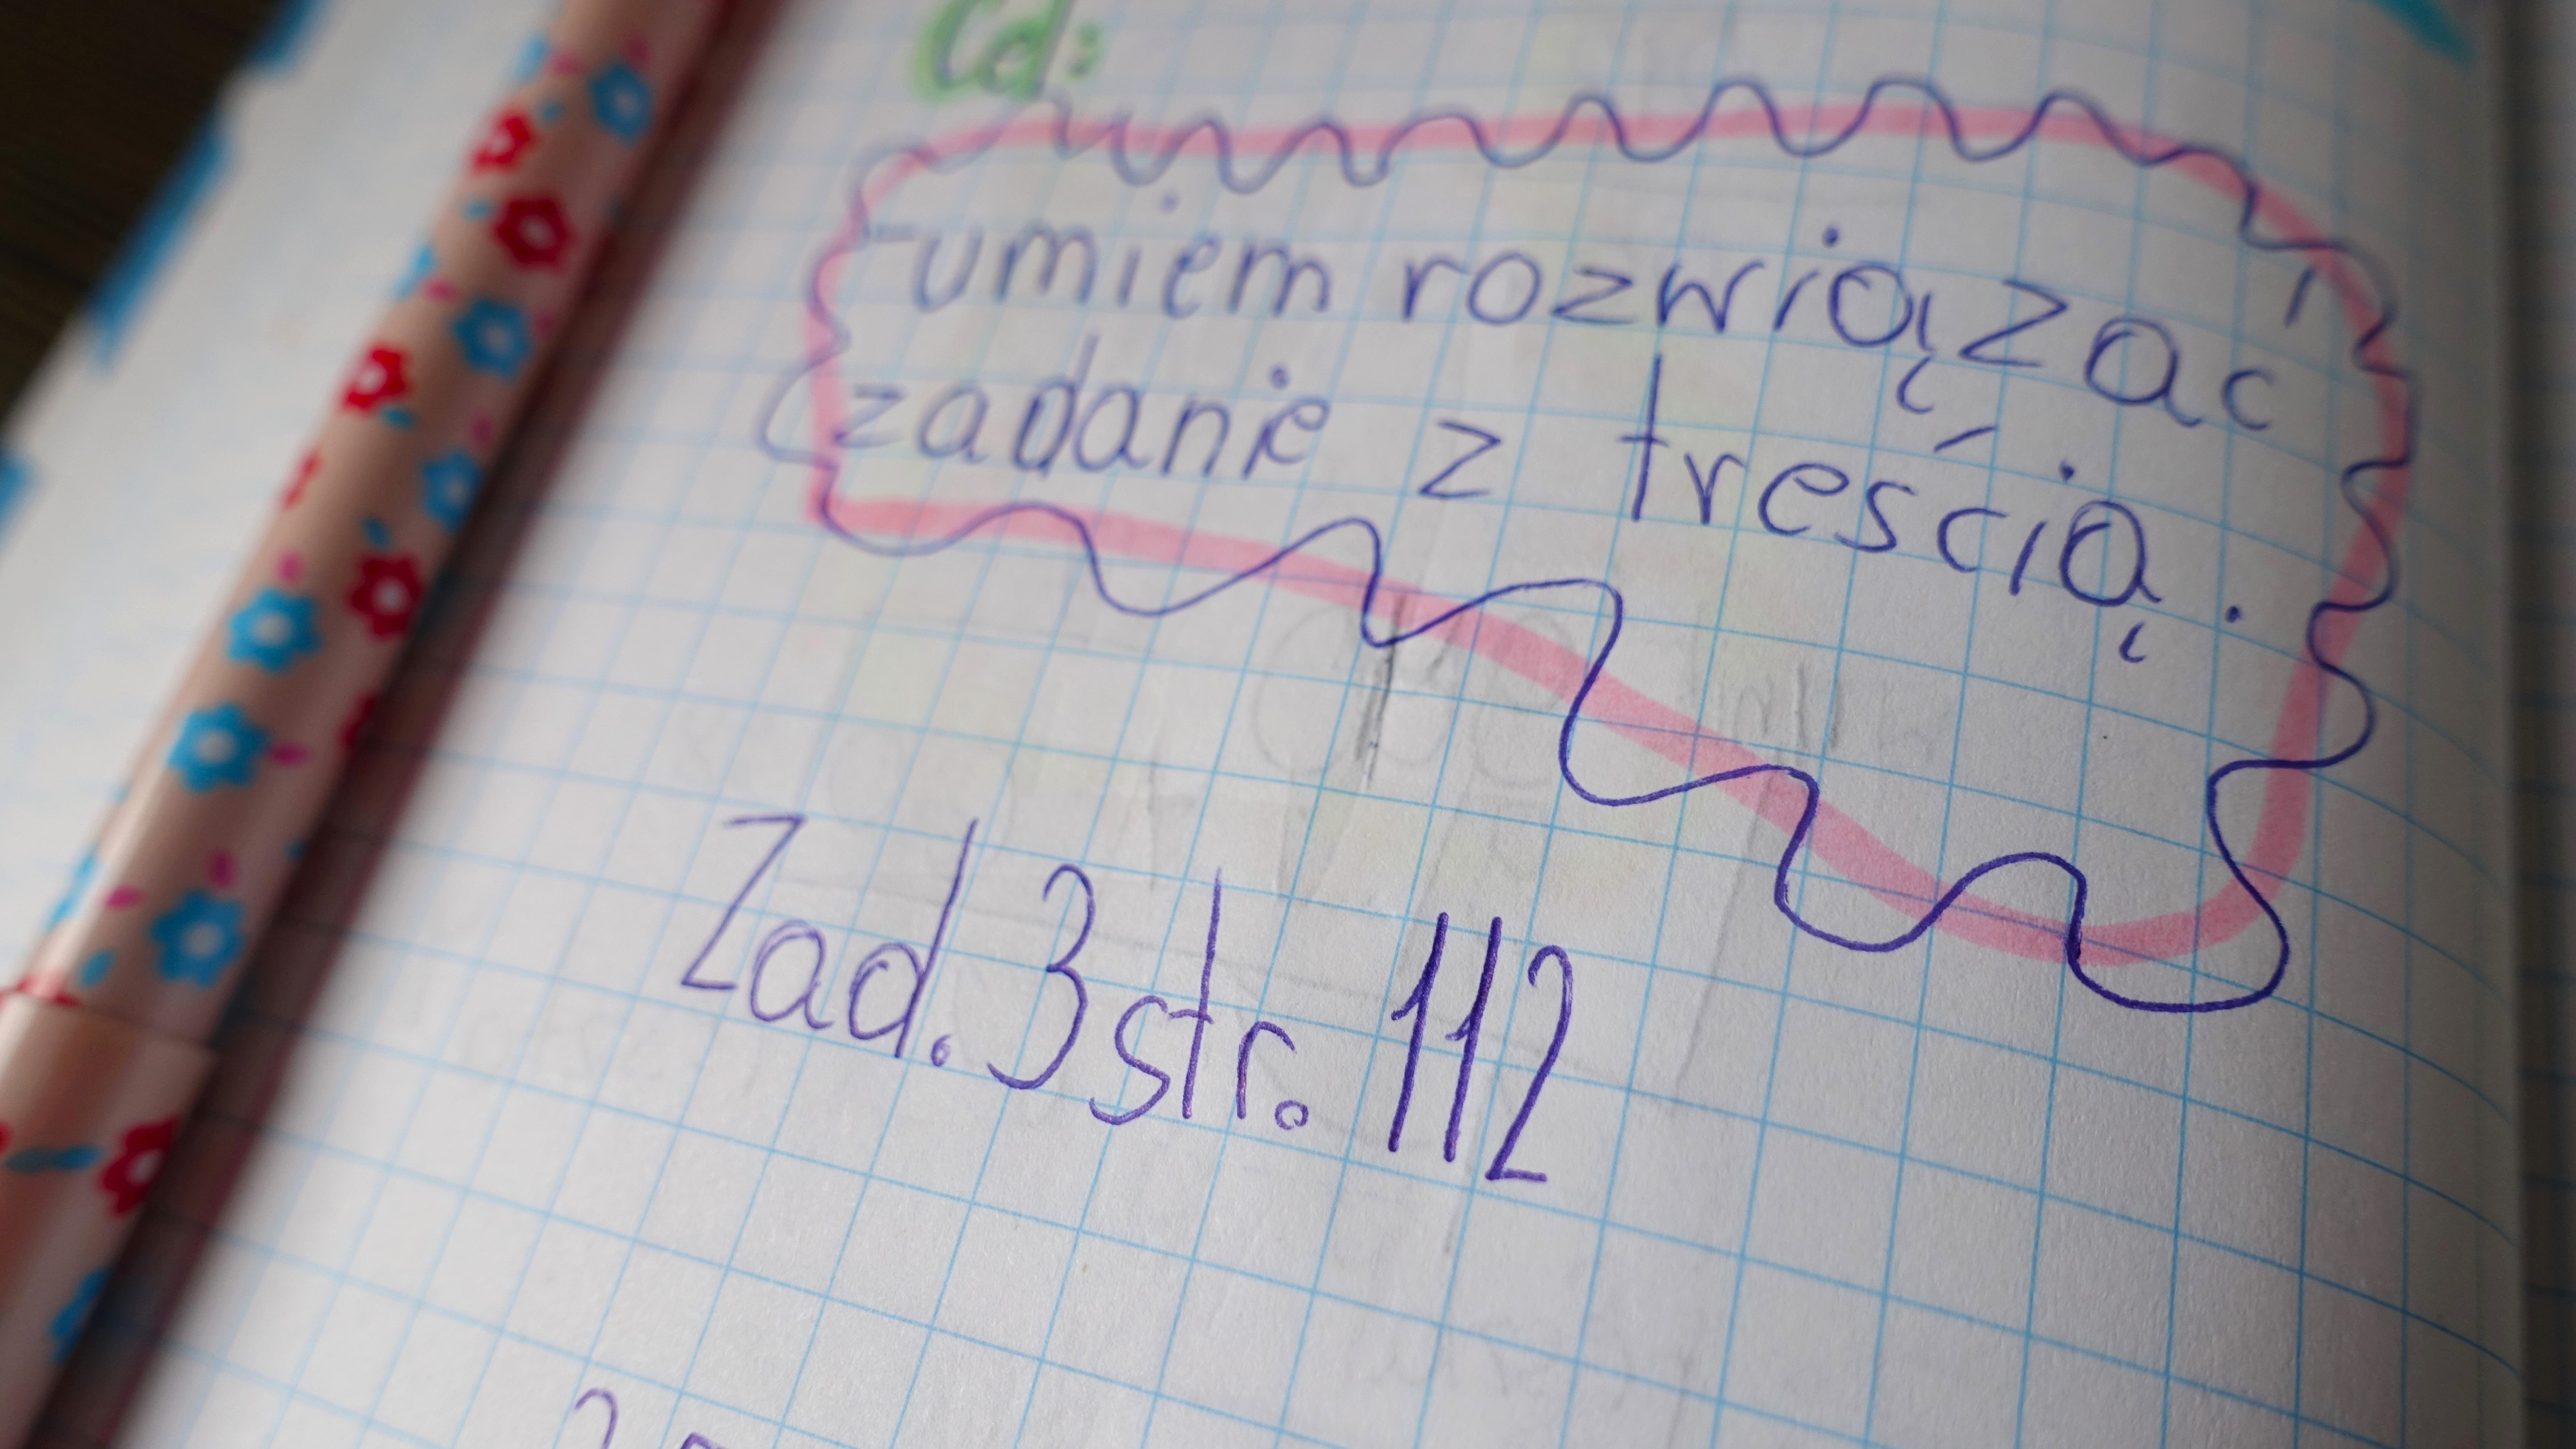 Cd:
- umiem rozwiązać
zadanie z treścią.
Zad. 3 str. 112